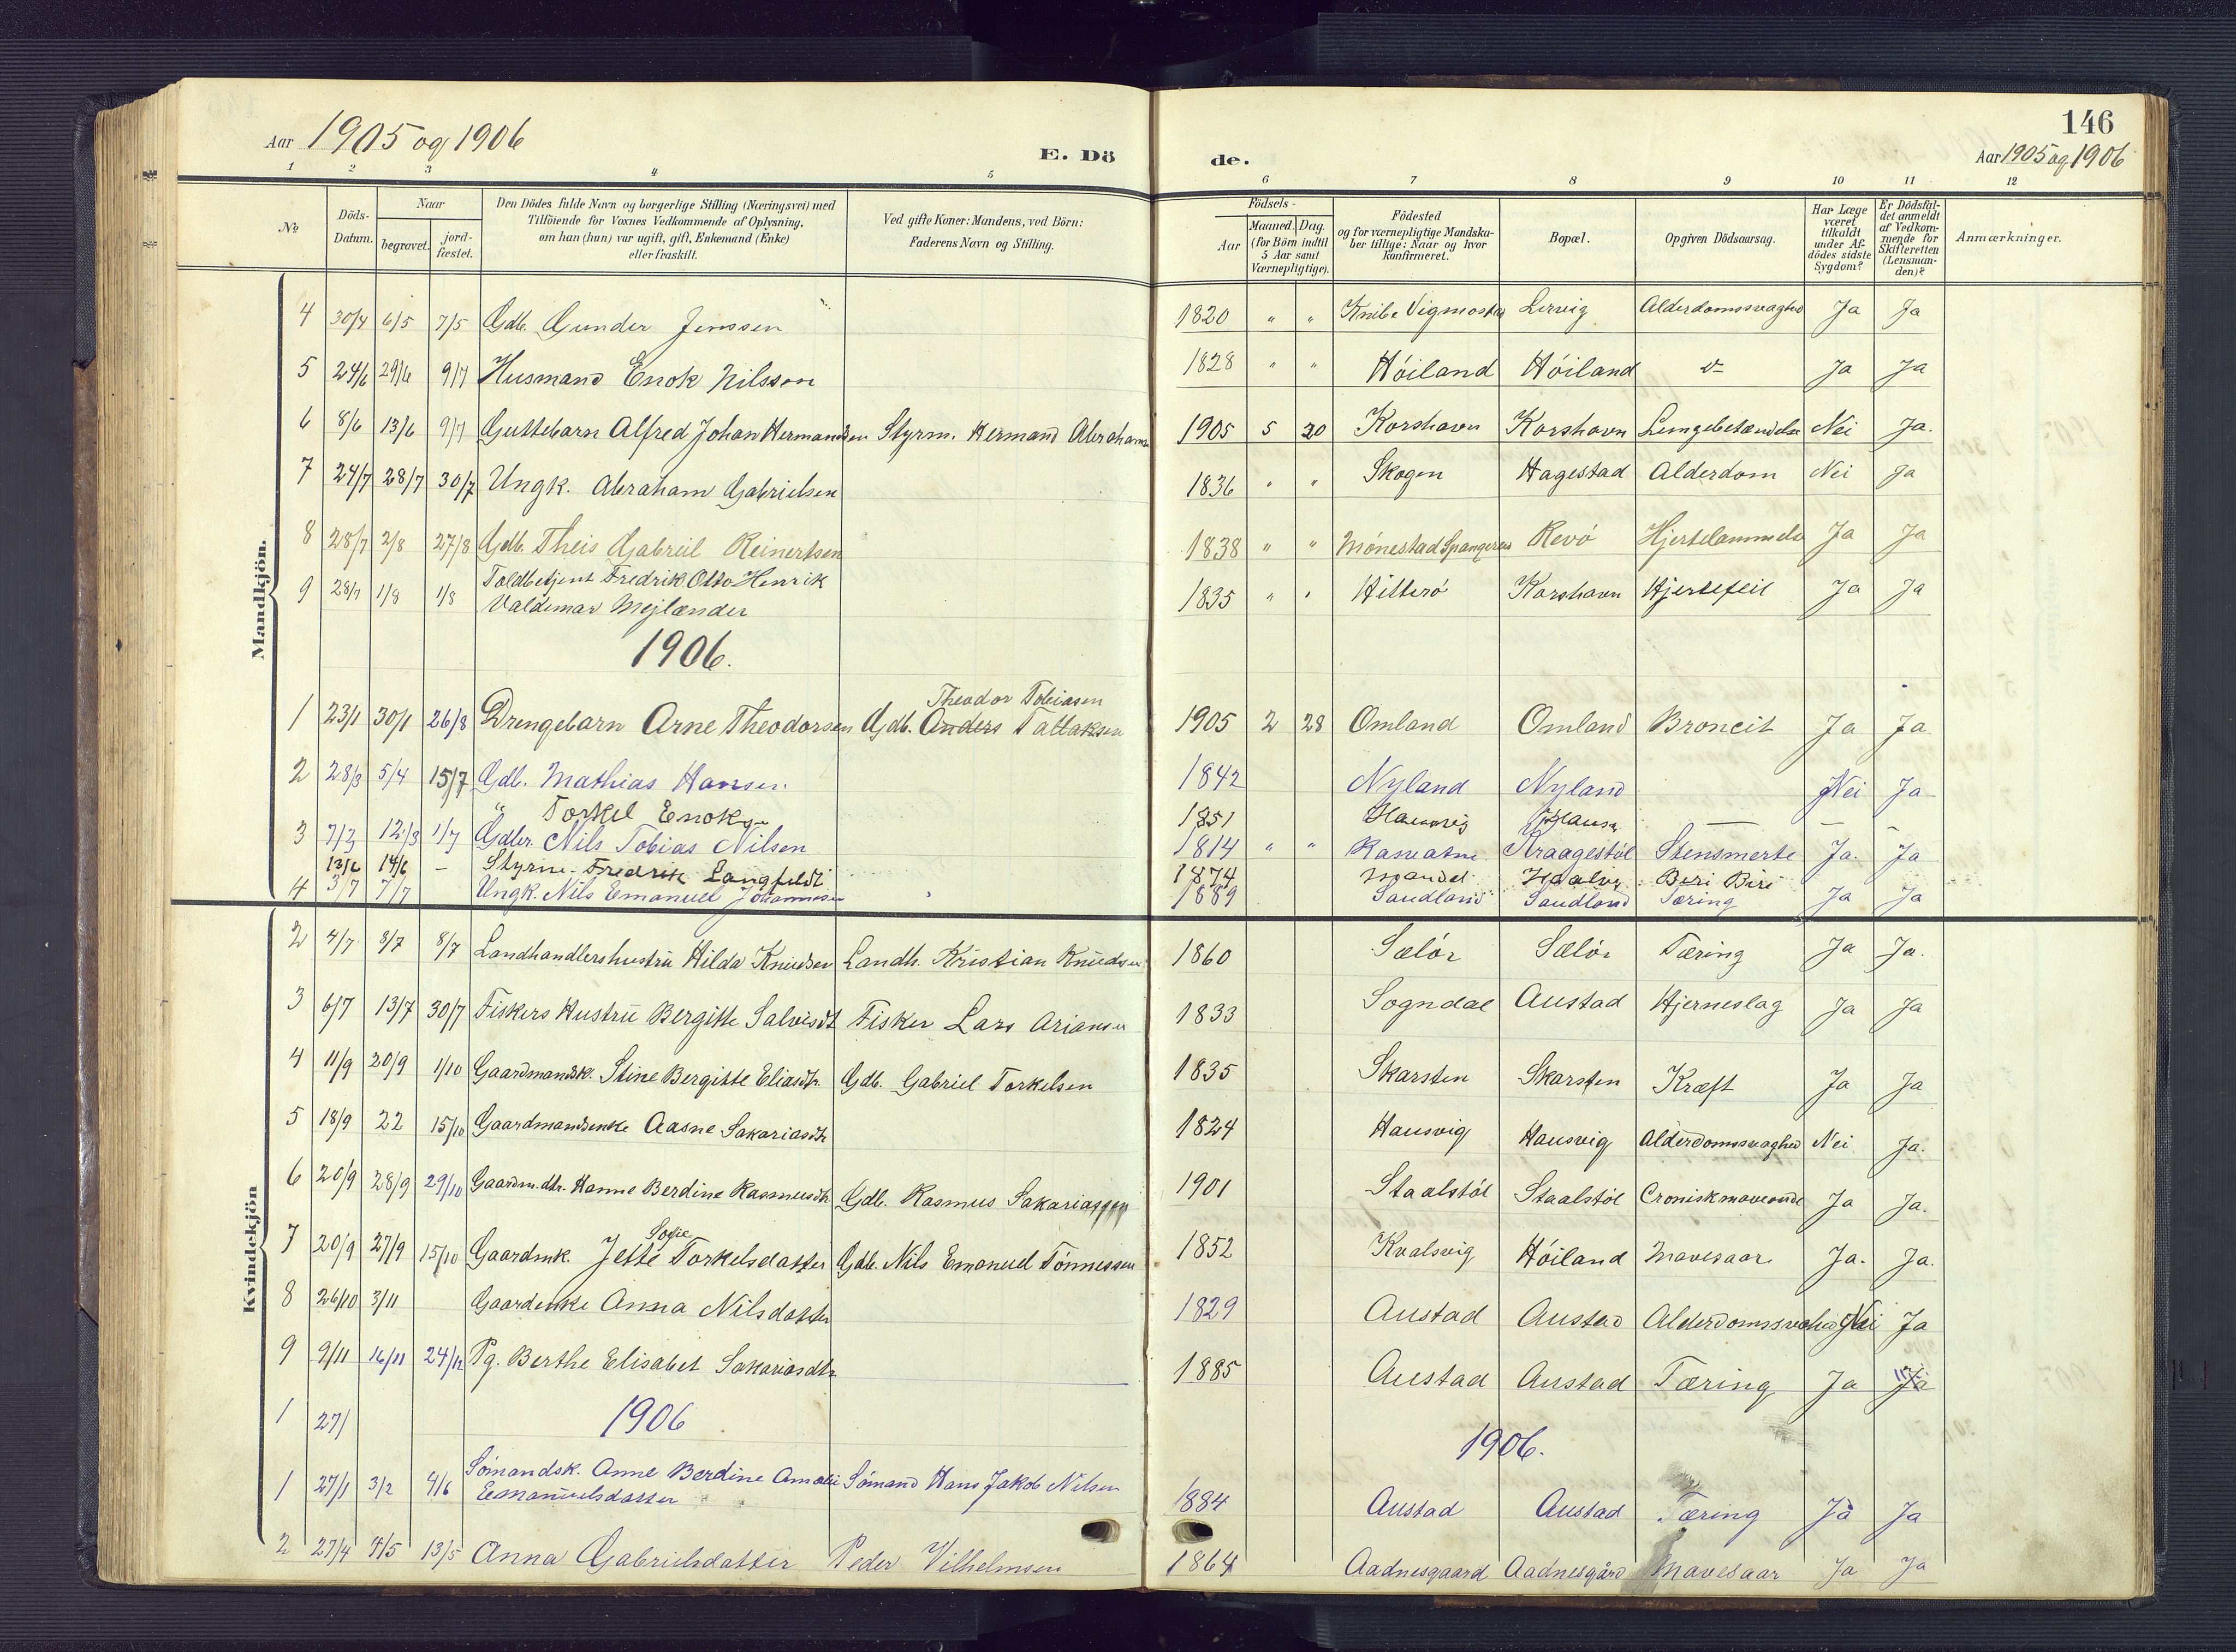 Aar 1905 og 1906
E. Dö
de.
146
Aar 1905 og 1906
1 2 3 4 5 6 7 8 9 10 11 12
№
Döds-Datum.
Naar
begravet.
jord-fæstet.
Den Dödes fulde Navn og borgerlige Stilling (Næringsvei) med
Tilföiende for Voxnes Vedkommende af Oplysning,
om han (hun) var ugift, gift, Enkemand (Enke)
eller fraskilt.
Ved gifte Koner: Mandens, ved Börn:
Faderens Navn og Stilling.
Födsels-
Aar
Maaned. Dag.
(for Börn indtil
5 Aar samt
Værnepligtige).
Födested
og for værnepligtige Mandska-
ber tillige: Naar og hvor
konfirmeret.
Bopæl.
Opgiven Dödsaarsag.
Har Læge
været
tilkaldt
under Af-
dödes sidste
Sygdom?
Er Dödsfal-
det anmeldt
af Vedkom-
mende for
Skifteretten
(Lensman-
den)?
Anmærkninger.
Mandkjön.
4 30/4 6/5 7/5 Gdb. Gunder Jenssen 1820 " " Knibe Vigmostad Lervig Alderdomssvaghed Ja Ja
5 24/6 29/6 9/7 Husmand Enok Nilsson 1828 " " Höiland Höiland Ja Ja
6 8/6 13/6 9/7 Guttebarn Alfred Johan Hermandsen Styrm. Hermand Abrahams 1905 5 20 Korshavn Korshavn Lungebetændelse Nei Ja.
7 24/7 28/7 30/7 Ungk. Abraham Gabrielsen 1836 " " Skogen Hagestad Alderdom Nei Ja
8 28/7 2/8 27/8 Gdb. Theis Gabriel Reinertsen 1838 " " Mönestad Spangereid Revö Hjertelammelse Ja Ja
9 28/7 1/8 1/8 Toldbetjent Fredrik Otto Henrik
Valdemar Mejlænder 1835 " " Hitterö Korshavn Hjertefeil Ja Ja
1906.
Theodor Tobiasen
1 23/1 30/1 26/8 Drengebarn Arne Theodorsen Gdb. Anders Tallaksen 1905 2 28 Omland Omland Broncit Ja Ja
2 28/3 5/4 15/7 Gdb. Mathias Hansen 1842 Nyland Nyland Nei Ja
" Torkel Enoks 1851 Hausvig
3 7/3 12/3 1/7 Gdbr. Nils Tobias Nilsen 1814 " " Raavatne Kraagestöl Stensmerte Ja. Ja
13/6 14/6 – Styrm. Fredrik Langfeldt 1874 Mandal Beri Biri
4 3/7 7/7 Ungk. Nils Emanuel Johannesen 1889 Sandland Sandland Tæring Ja Ja
Kvindekjön
2 4/7 8/7 8/7 Landhandlershustru Hilda Knudsen Landh. Kristian Knudsen 1860 Sælör Sælör Tæring Ja Ja.
3 6/7 13/7 30/7 Fiskers Hustru Bergitte Salvesdt Fisker Lars Ariansen 1833 Sogndal Austad Hjerneslag Ja Ja
4 11/9 20/9 1/10 Gaardmandsk. Stine Bergitte Eliasdtr. Gdb. Gabriel Torkelsen 1835 Skarsten Skarsten Kræft Ja Ja
5 18/9 22 15/10 Gaardmandsenke Aasne Sakariasdtr 1824 Hausvig Hausvig Alderdomssvaghed Nei Ja.
6 20/9 28/9 29/10 Gaardm.dtr. Hanne Berdine Rasmusdtr. Gdb. Rasmus Sakariassen 1901 Staalstöl Staalstöl Cronisk maveonde Ja Ja.
Sofie
7 20/9 27/9 15/10 Gaardmk. Jette Torkelsdatter Gdb. Nils Emanuel Tönnessen 1852 Kvalsvig Höiland Mavesaar Ja. Ja.
8 26/10 3/11 Gaardenke Anna Nilsdatter 1829 Austad Austad Alderdomssvaghed Nei Ja
9 9/11 16/11 24/12 Pg. Berthe Elisabet Sakariasdtr 1885 Austad Austad Tæring Ja Ja
1 27/ 1906 1906.
1 27/1 3/2 4/6 Sömandsk. Anne Berdine Amalie Sömand Hans Jakob Nilsen
Eemanuelsdatter 1884 Austad Austad Tæring Ja Ja
2 27/4 4/5 13/5 Anna Gabrielsdatter Peder Vilhelmsen 1864 Aadnesgaard Aadnesgård Mavesaar Ja Ja